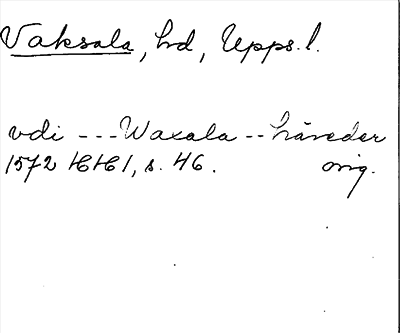 Vaksala, hd, Upps. l.
vdi --- Waxala -- häreder
1572 HH 1, s. 46. orig.